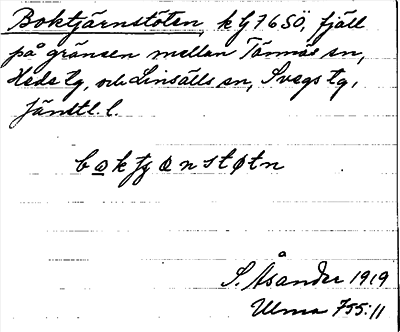 Boktjärnstöten, k bj 76 SÖ, fjäll
på gränsen mellan Tännäs sn,
Hede tg, och Linsälls sn, Svegs tg,
Jämtl. l.
S. Åsander 1919
Ulma 755:11